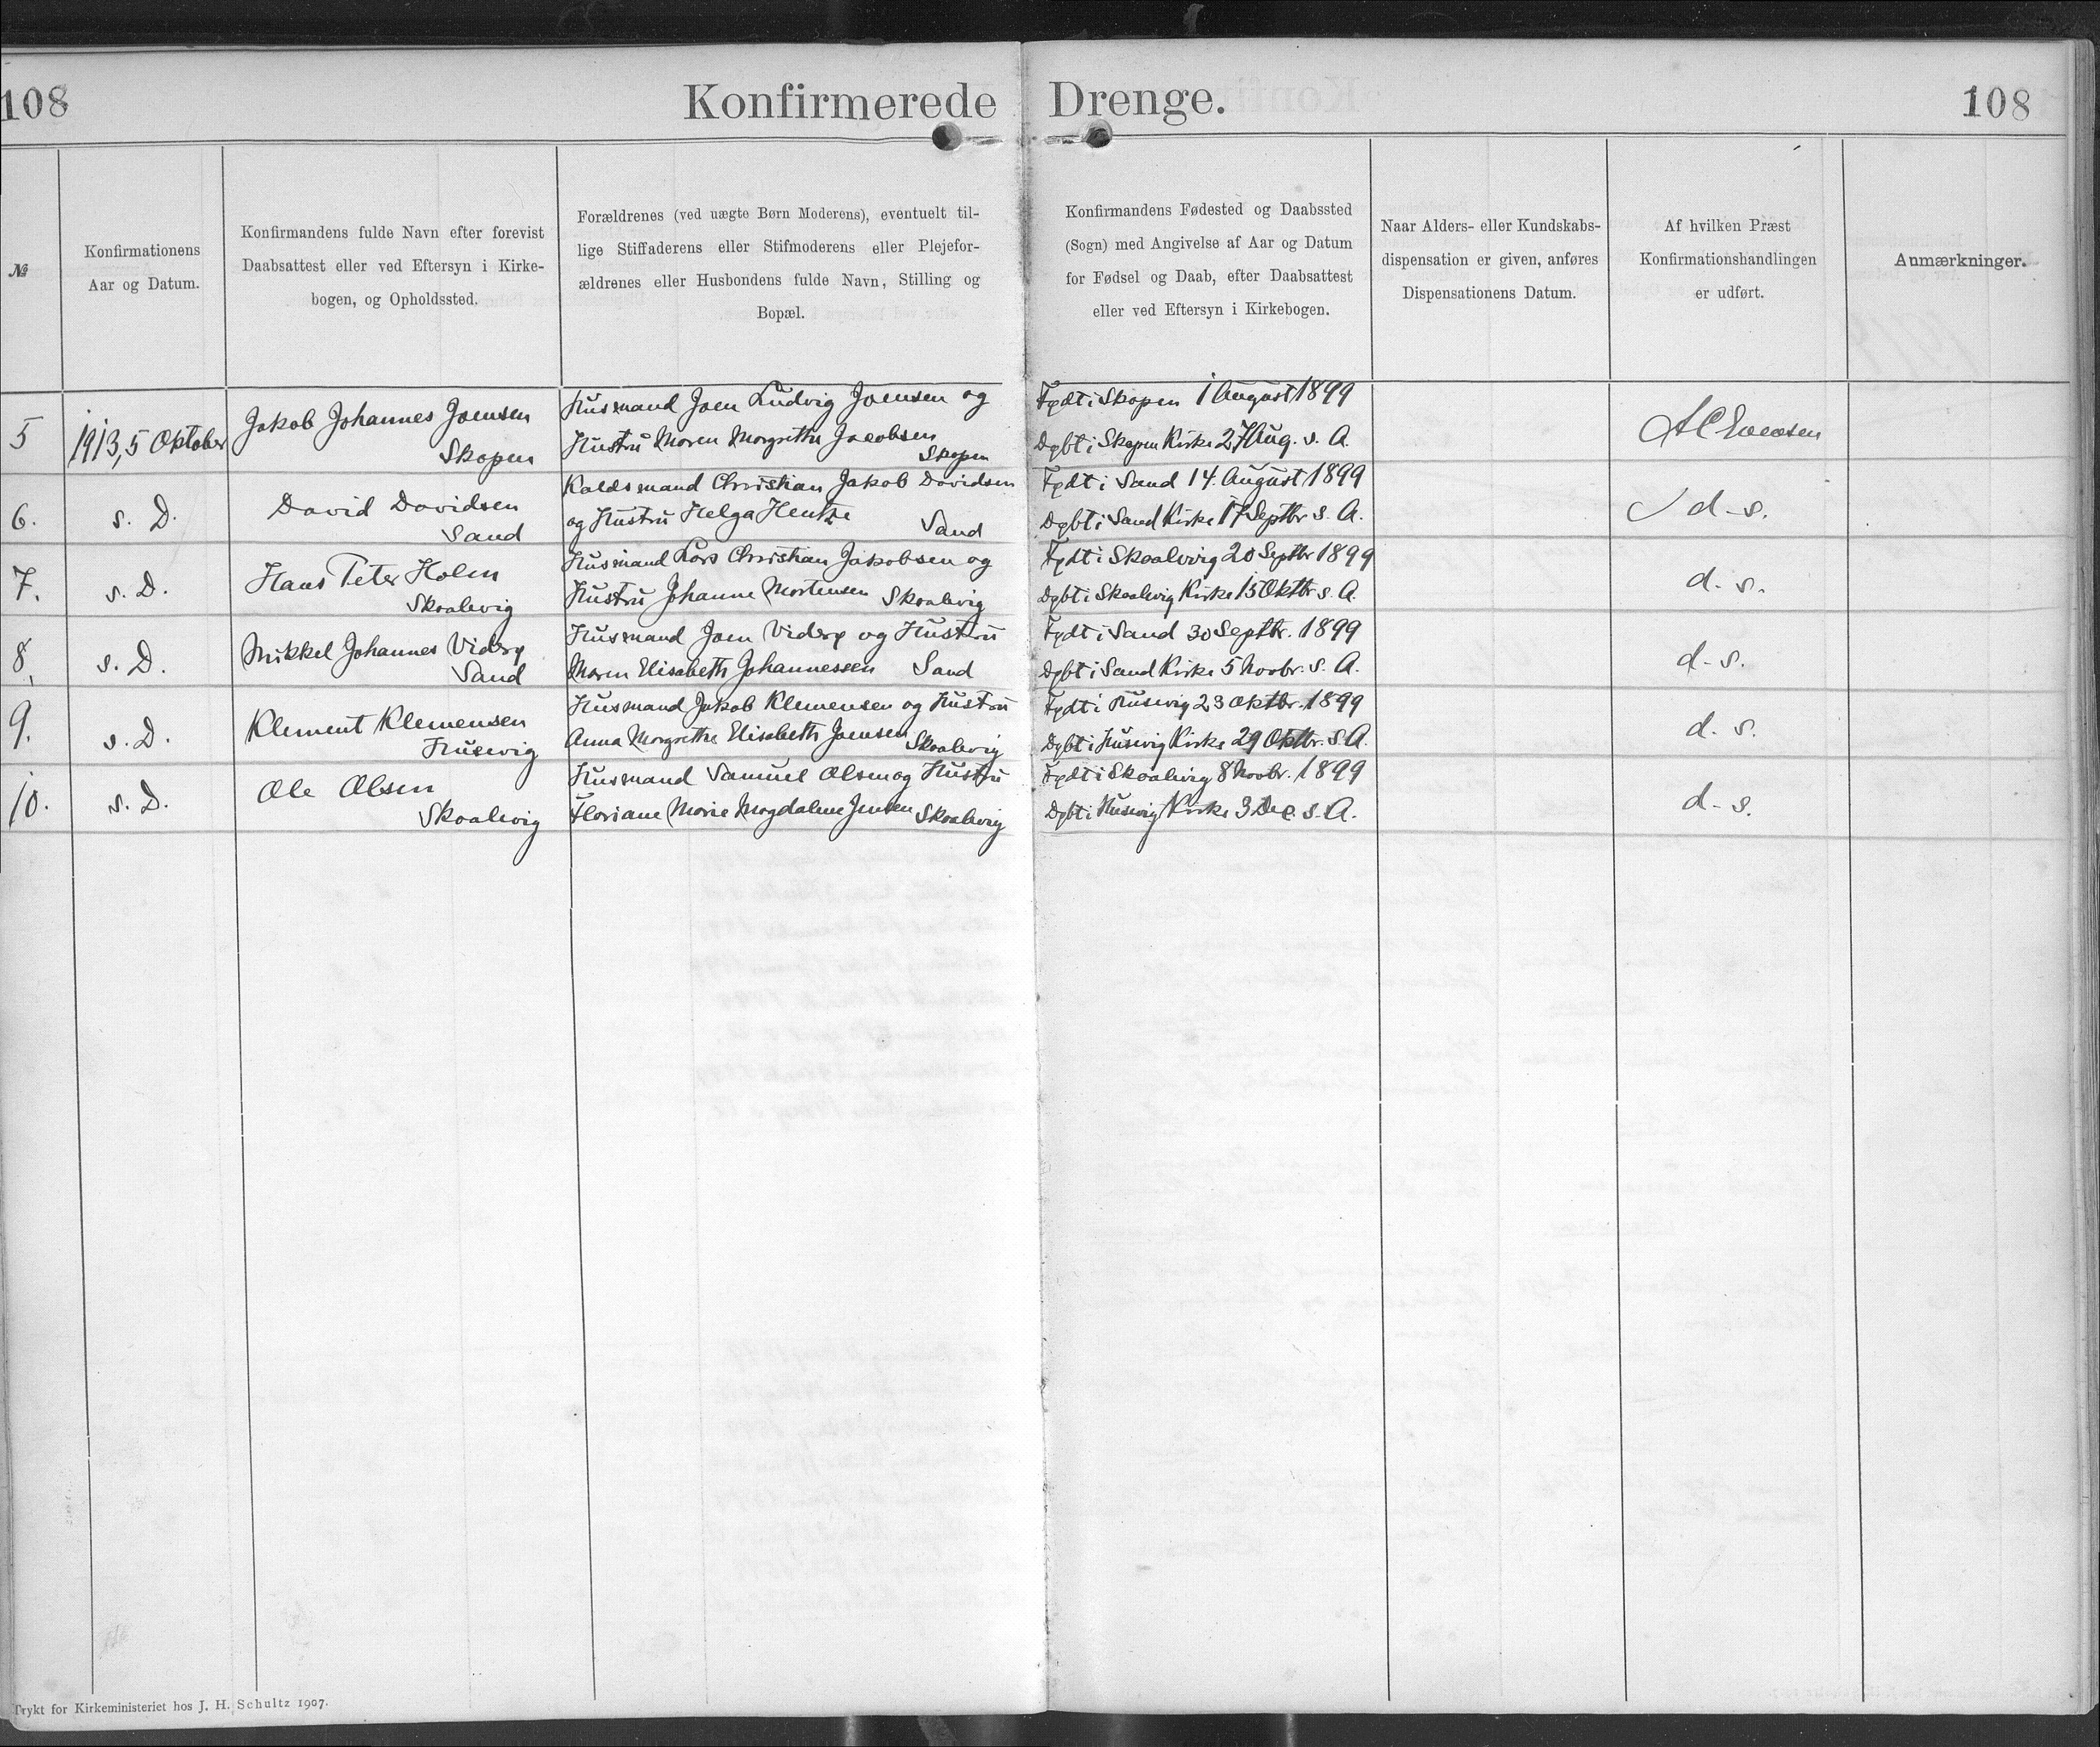 108
Konfirmerede Drenge.
108
№
Konfirmationens
Aar og Datum.
Konfirmandens fulde Navn efter forevist
Daabsattest eller ved Eftersyn i Kirke-
bogen, og Opholdssted.
Forældrenes (ved uægte Børn Moderens), eventuelt til-
lige Stiffaderens eller Stifmoderens eller Plejefor-
ældrenes eller Husbondens fulde Navn, Stilling og
Bopæl.
Konfirmandens Fødested og Daabssted
(Sogn) med Angivelse af Aar og Datum
for Fødsel og Daab, efter Daabsattest
eller ved Eftersyn i Kirkebogen.
Naar Alders- eller Kundskabs-
dispensation er given, anføres
Dispensationens Datum.
Af hvilken Præst
Konfirmationshandlingen
er udført.
Anmærkninger.
5
1913, 5 Oktober
Jakob Johannes Joensen
Skopen
Husmand Joen Ludvig Joensen og
Hustru Maren Margrethe Jacobsen
Skopen
Født i Skopen 1 August 1899
Døbt i Skopen Kirke 27 Aug. s. A.
A C Evensen
6.
s. D.
David Davidsen
Sand
Kaldsmand Christian Jakob Davidsen
og Hustru Helga Hentze Sand
Født i Sand 14. August 1899
Døbt i Sand Kirke 17 Septbr s. A.
d-s.
7.
s. D.
Hans Peter Holm
Skaalevig
Husmand Lars Christian Jakobsen og
Hustru Johanne Mortensen Skaalevig
Født i Skaalevig 20 Septbr 1899
Døbt i Skaalevig Kirke 15 Oktbr s. A.
d. s.
8.
s. D.
Mikkel Johannes Viderø
Sand
Husmand Joen Viderø og Hustru
Maren Elisabeth Johannessen Sand
Født i Sand 30 Septbr. 1899
Døbt i Sand Kirke 5 Novbr. s. A.
d-s.
9.
s. D.
Klement Klemensen
Husevig
Husmand Jakob Klemensen og Hustru
Anna Margrethe Elisabeth Joensen Skaalevig
Født i Husevig 23 Oktbr. 1899
Døbt i Husevig Kirke 29 Oktbr. s. A.
d. s.
10.
s. D.
Ole Olsen
Skaalevig
Husmand Samuel Olsen og Hustru
Floriane Marie Magdalene Jensen Skaalevig
Født i Skaalevig 8 Novbr. 1899
Døbt i Husevig Kirke 3 Dec. s. A.
d-s.
Trykt for Kirkeministeriet hos J. H. Schultz 1907.